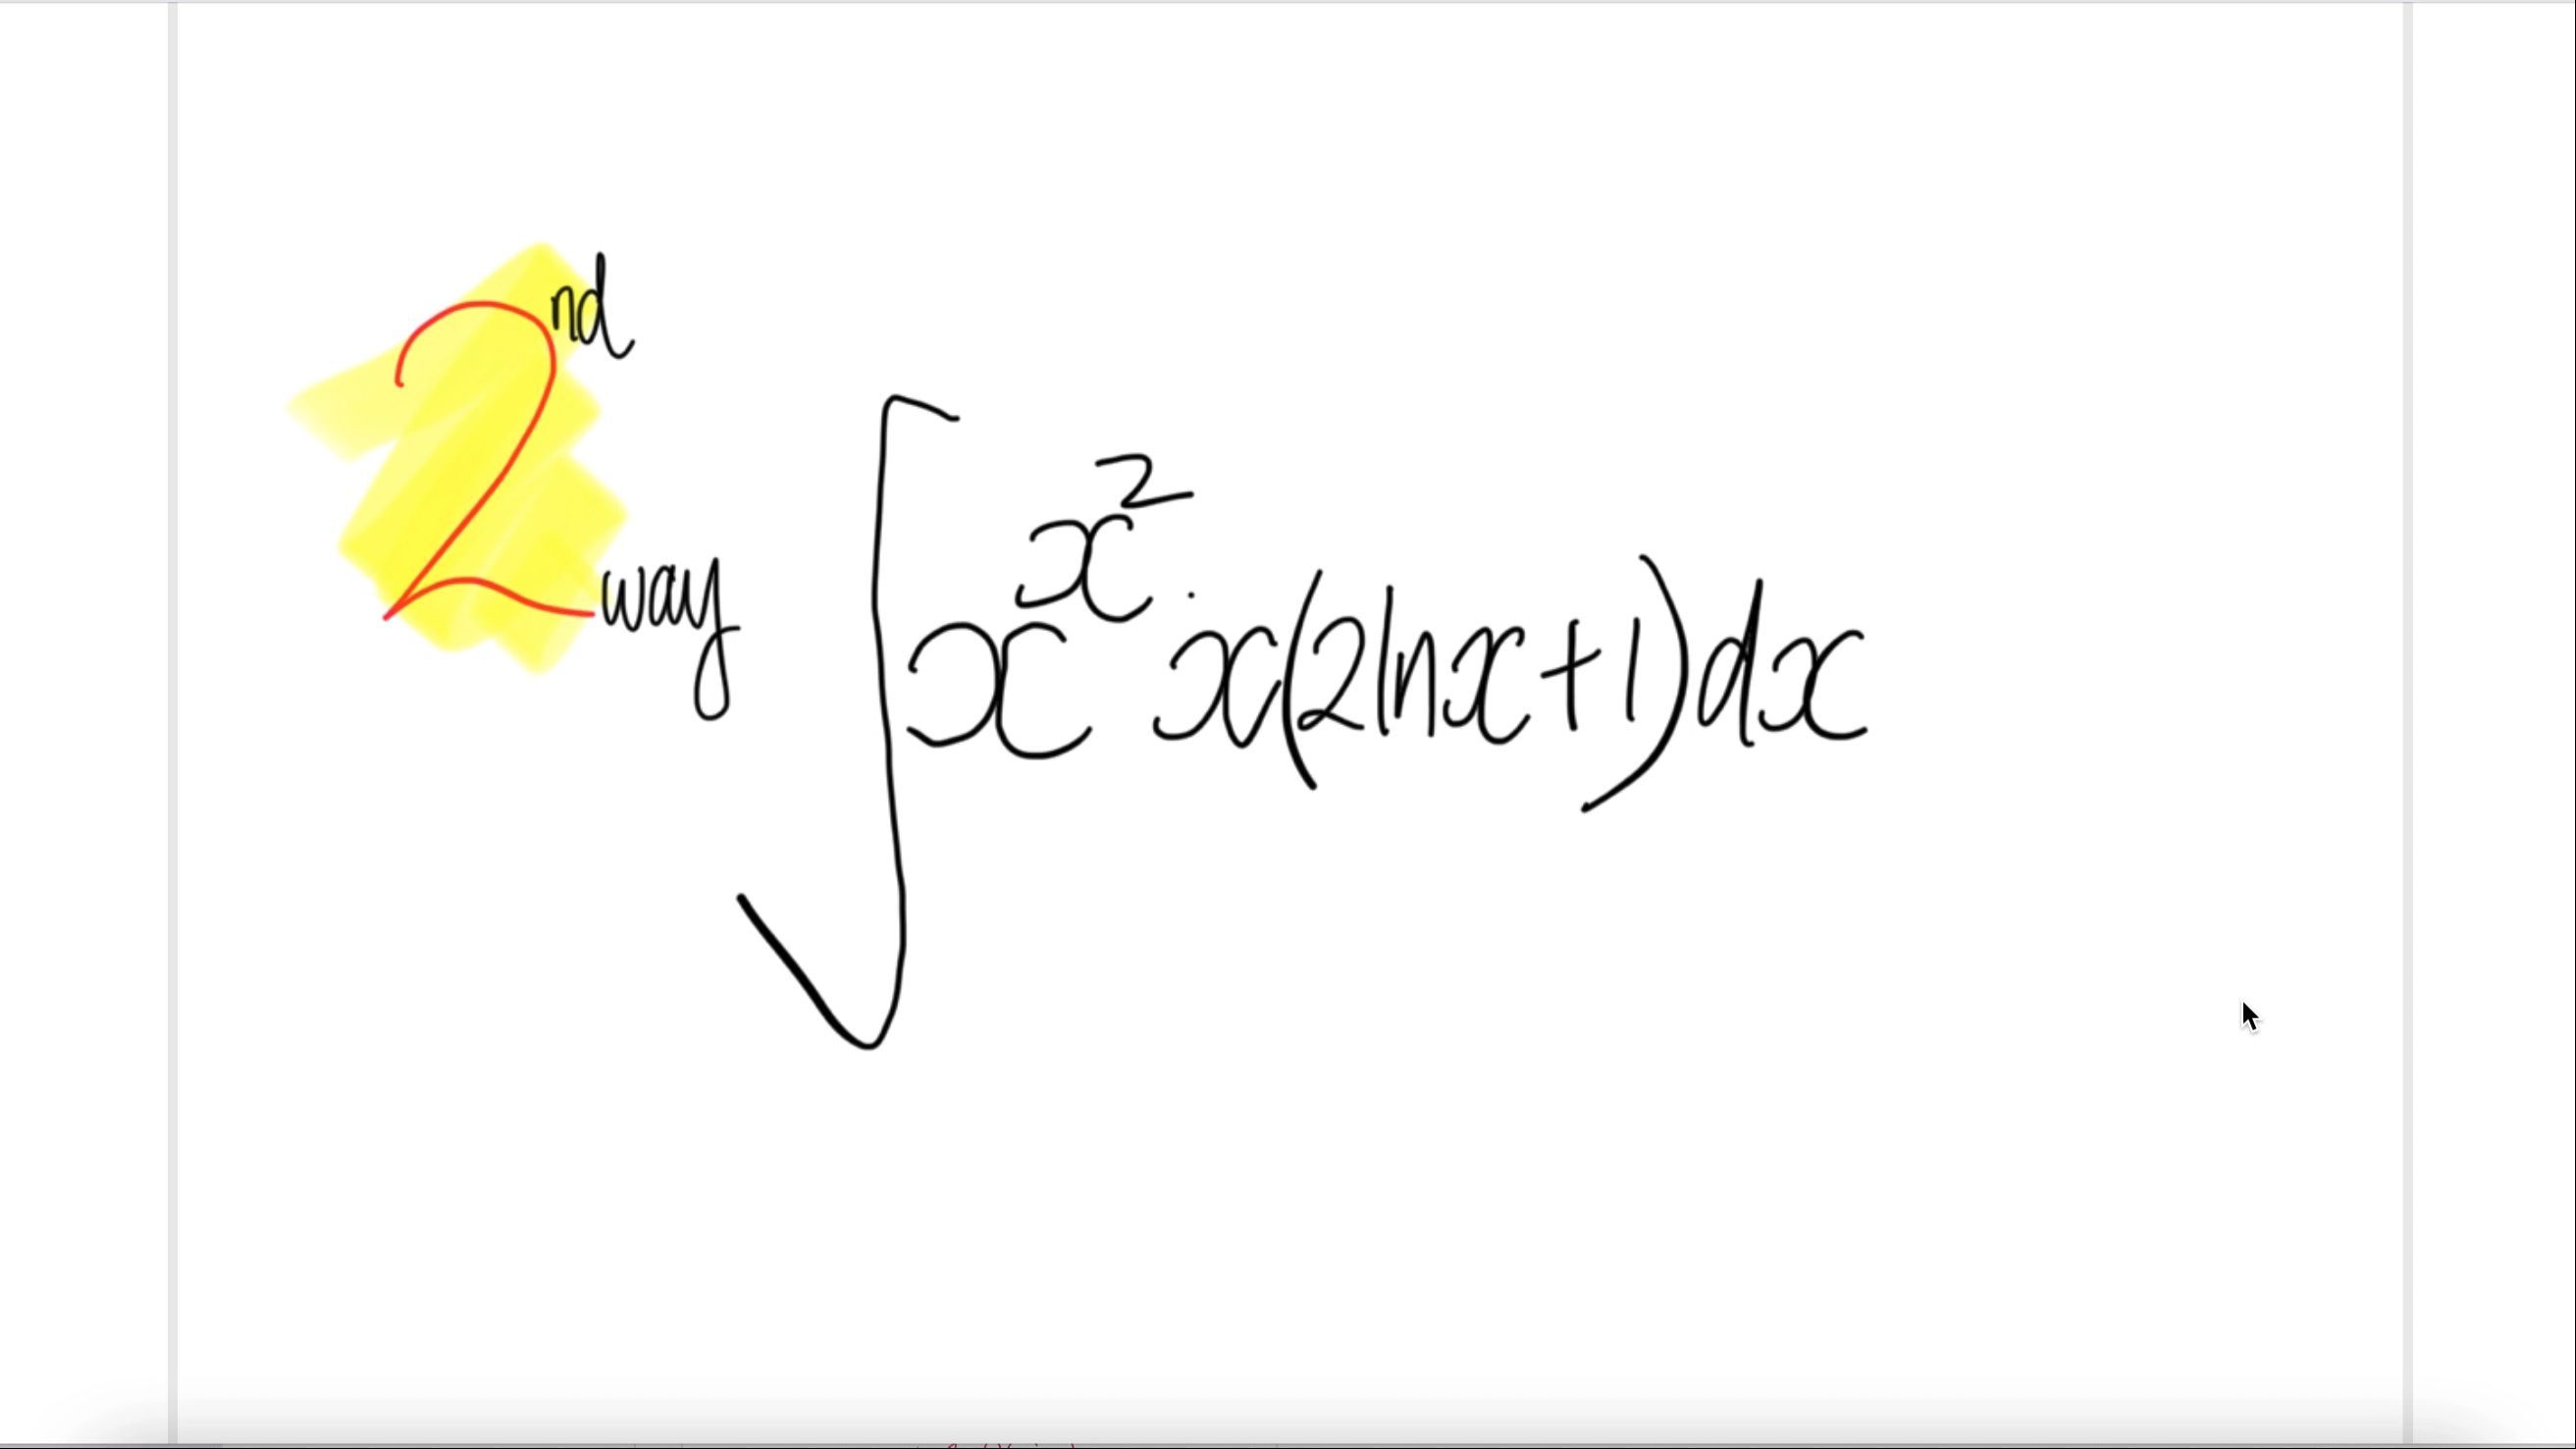 2nd
way
∫ x^{x^2} · x(2lnx+1)dx